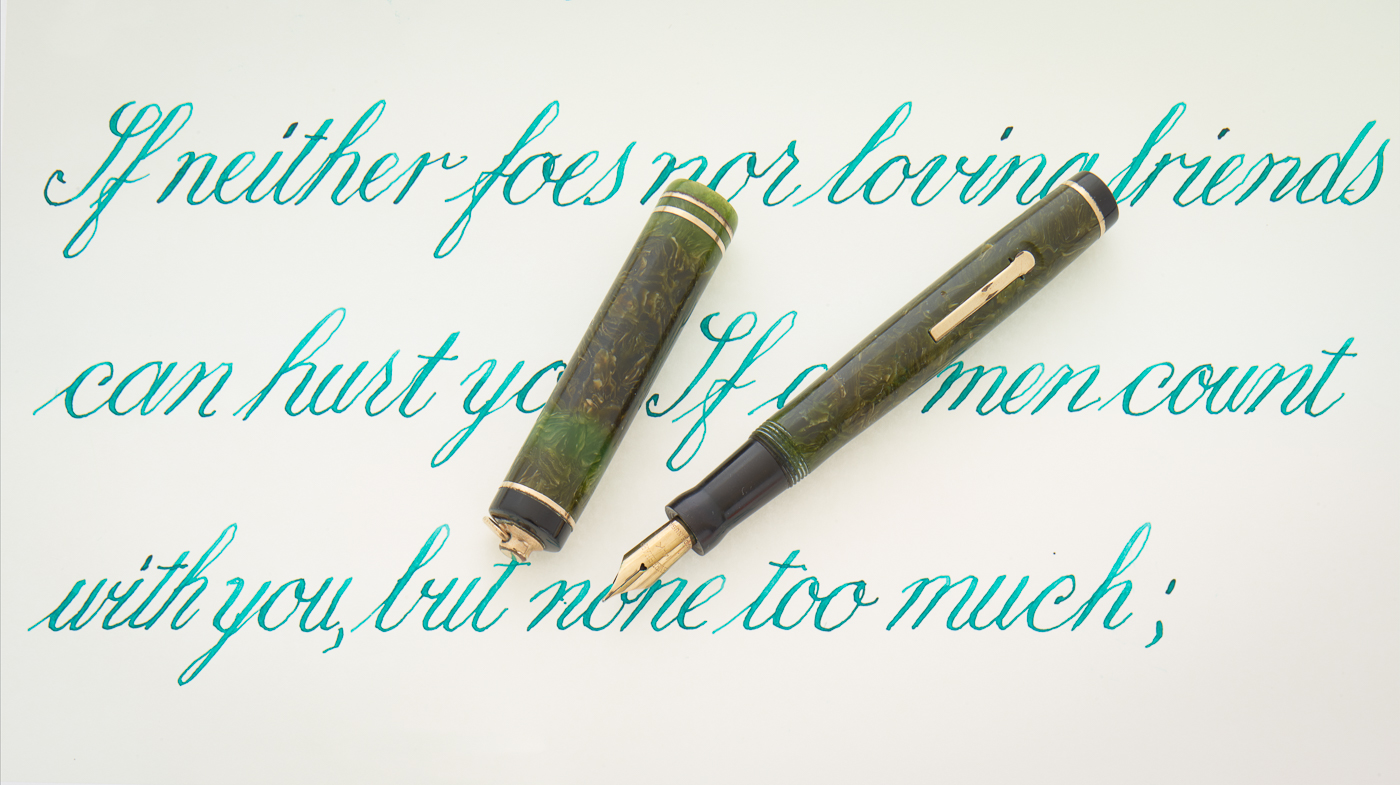 If neither foes nor loving friends
can hurt If men count
with you, but none too much ;